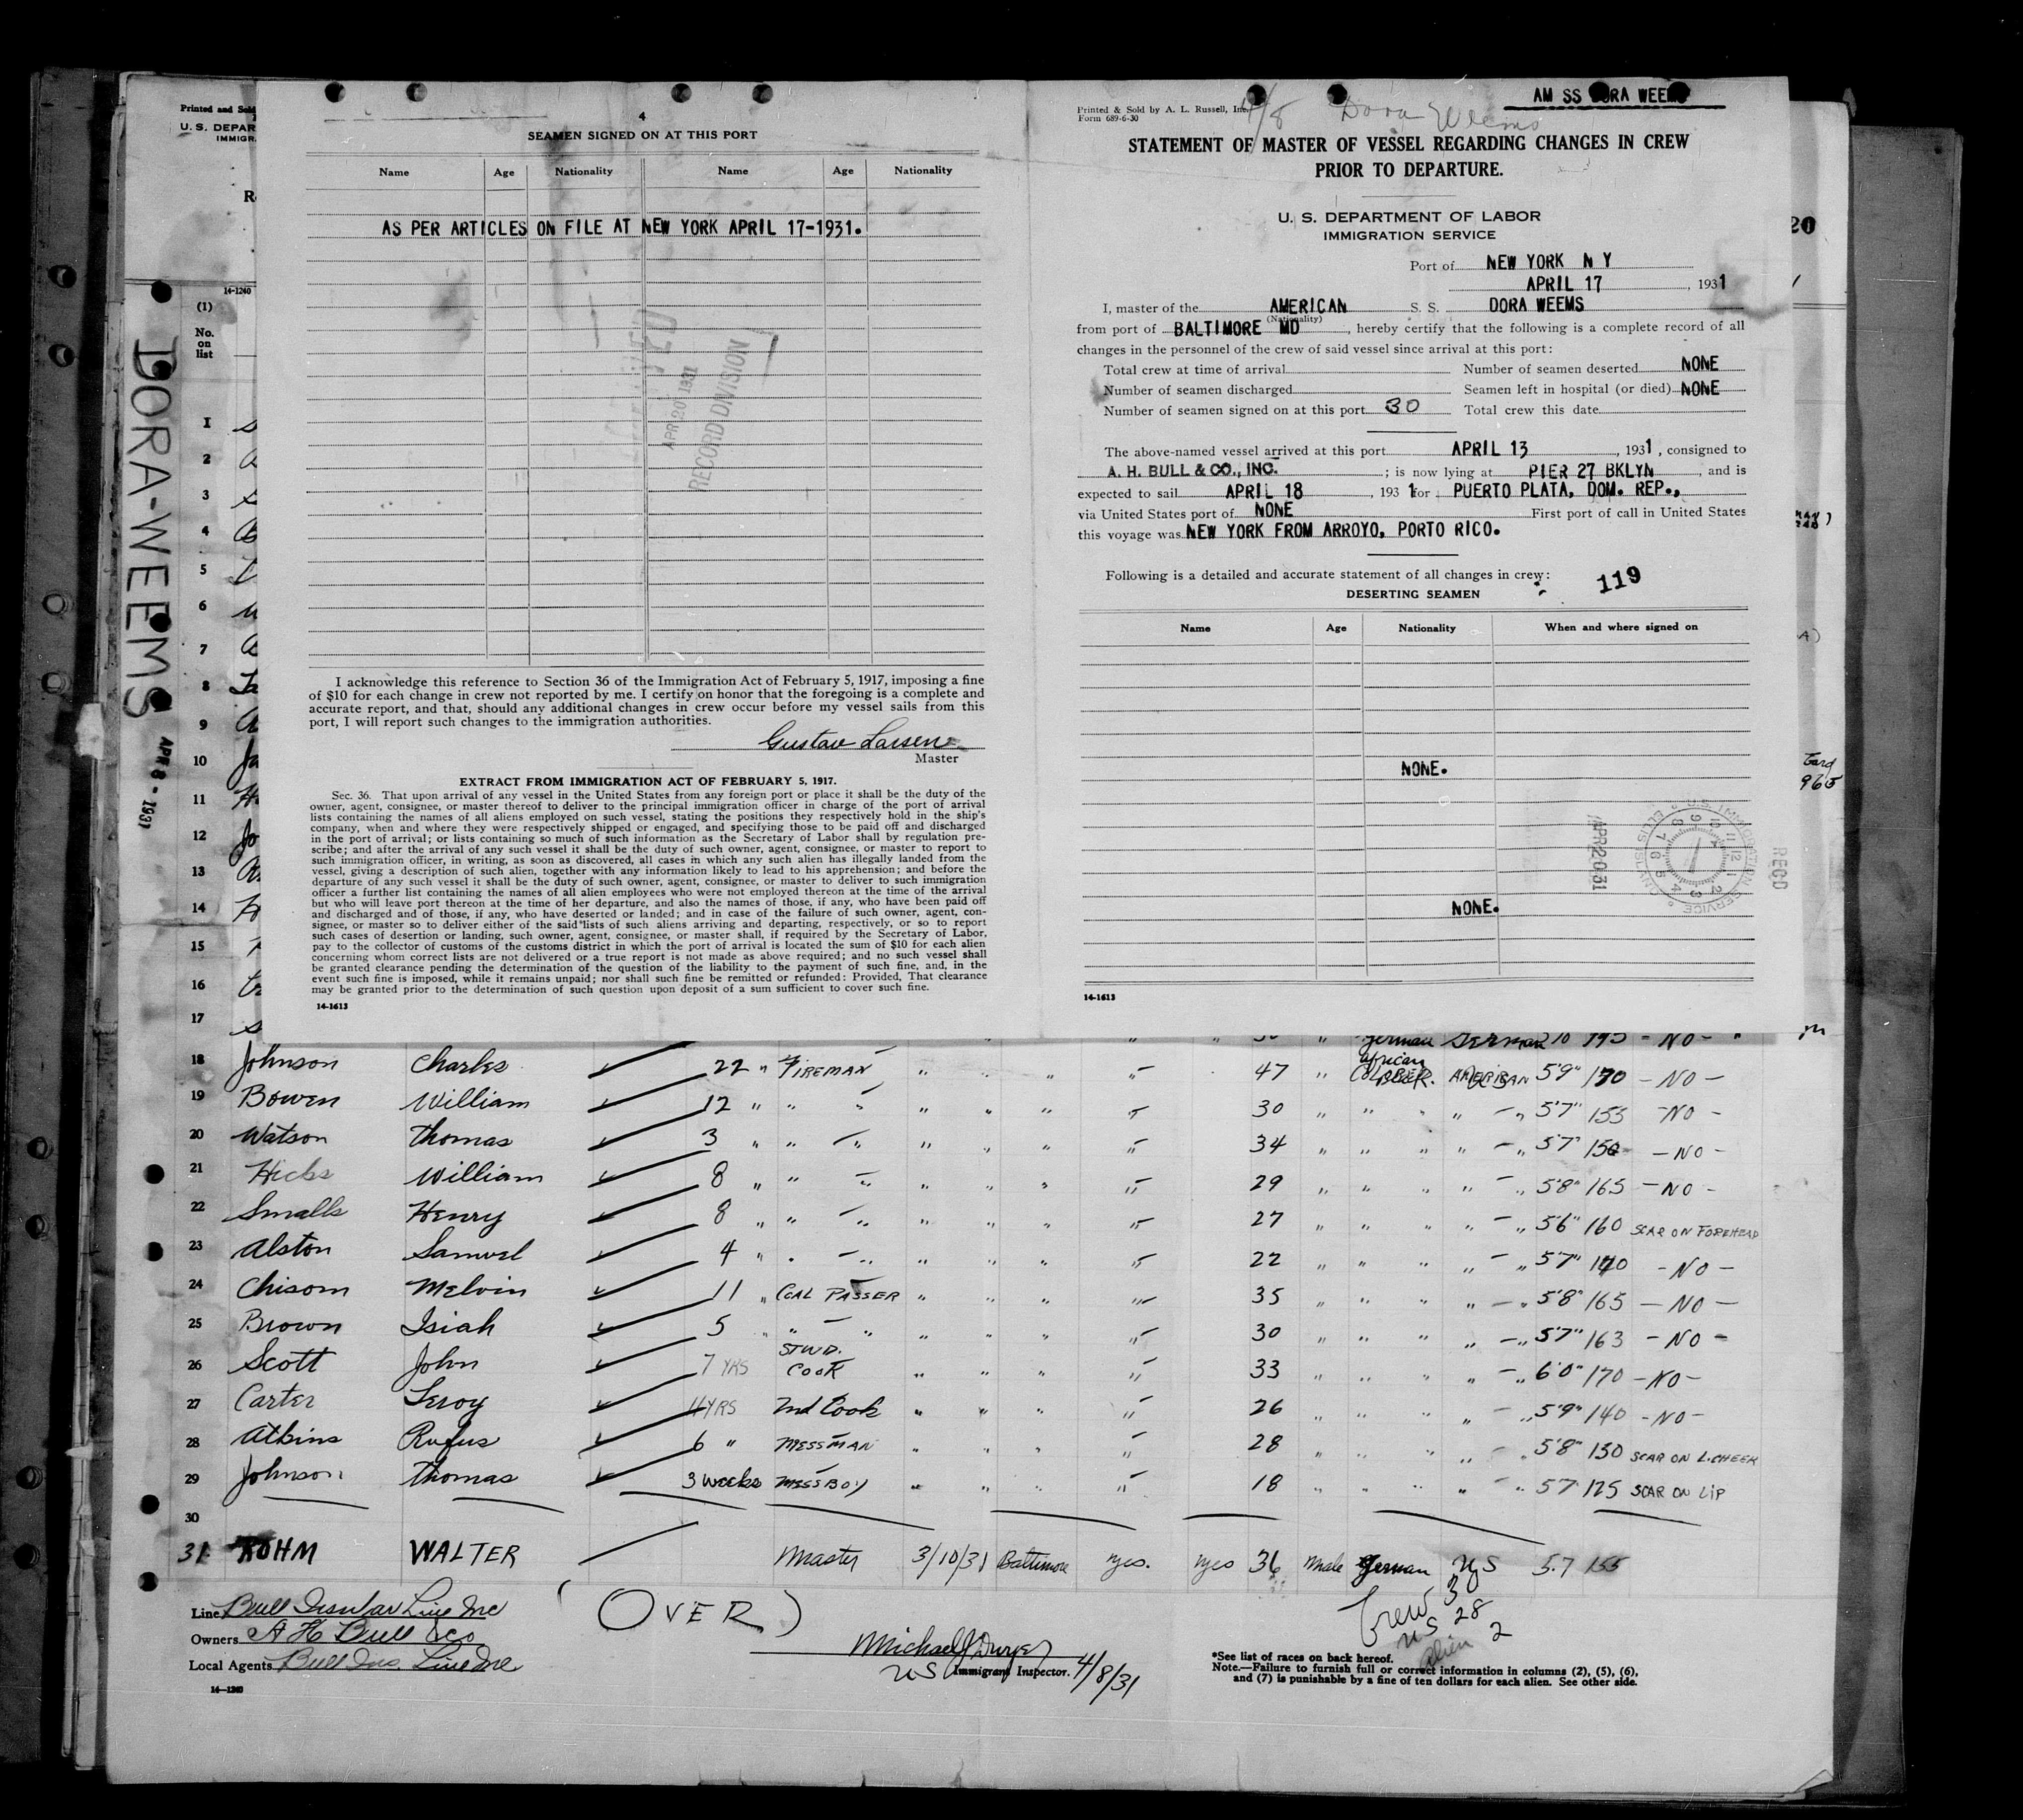 AM SS DORA WEEMS
4/8 Dora Weems
Printed and Sold
U. S. DEPAR
IMMIGR
14-1240
(1)
No.
on
list
DORA-WEEMS
APR 8 - 1931
4
SEAMEN SIGNED ON AT THIS PORT
Name Age Nationality Name Age Nationality
AS PER ARTICLES ON FILE AT NEW YORK APRIL 17-1931.
APR 20 1931
RECORD DIVISION
I acknowledge this reference to Section 36 of the Immigration Act of February 5, 1917, imposing a fine
of $10 for each change in crew not reported by me. I certify on honor that the foregoing is a complete and
accurate report, and that, should any additional changes in crew occur before my vessel sails from this
port, I will report such changes to the immigration authorities.
Gustav Larsen
Master
EXTRACT FROM IMMIGRATION ACT OF FEBRUARY 5, 1917.
Sec. 36. That upon arrival of any vessel in the United States from any foreign port or place it shall be the duty of the
owner, agent, consignee, or master thereof to deliver to the principal immigration officer in charge of the port of arrival
lists containing the names of all aliens employed on such vessel, stating the positions they respectively hold in the ship's
company, when and where they were respectively shipped or engaged, and specifying those to be paid off and discharged
in the port of arrival; or lists containing so much of such information as the Secretary of Labor shall by regulation pre-
scribe; and after the arrival of any such vessel it shall be the duty of such owner, agent, consignee, or master to report to
such immigration officer, in writing, as soon as discovered, all cases in which any such alien has illegally landed from the
vessel, giving a description of such alien, together with any information likely to lead to his apprehension; and before the
departure of any such vessel it shall be the duty of such owner, agent, consignee, or master to deliver to such immigration
officer a further list containing the names of all alien employees who were not employed thereon at the time of the arrival
but who will leave port thereon at the time of her departure, and also the names of those, if any, who have been paid off
and discharged and of those, if any, who have deserted or landed; and in case of the failure of such owner, agent, con-
signee, or master so to deliver either of the said lists of such aliens arriving and departing, respectively, or so to report
such cases of desertion or landing, such owner, agent, consignee, or master shall, if required by the Secretary of Labor,
pay to the collector of customs of the customs district in which the port of arrival is located the sum of $10 for each alien
concerning whom correct lists are not delivered or a true report is not made as above required; and no such vessel shall
be granted clearance pending the determination of the question of the liability to the payment of such fine, and, in the
event such fine is imposed, while it remains unpaid; nor shall such fine be remitted or refunded: Provided, That clearance
may be granted prior to the determination of such question upon deposit of a sum sufficient to cover such fine.
14-1613
Printed & Sold by A. L. Russell, Inc.
Form 689-6-30
STATEMENT OF MASTER OF VESSEL REGARDING CHANGES IN CREW
PRIOR TO DEPARTURE.
U. S. DEPARTMENT OF LABOR
IMMIGRATION SERVICE
Port of NEW YORK N Y
APRIL 17, 1931
I, master of the AMERICAN S. S. DORA WEEMS
(Nationality)
from port of BALTIMORE MD, hereby certify that the following is a complete record of all
changes in the personnel of the crew of said vessel since arrival at this port:
Total crew at time of arrival Number of seamen deserted NONE
Number of seamen discharged Seamen left in hospital (or died) NONE
Number of seamen signed on at this port 30 Total crew this date
The above-named vessel arrived at this port APRIL 13, 1931, consigned to
A. H. BULL & CO., INC.; is now lying at PIER 27 BKLYN, and is
expected to sail APRIL 18, 1931 for PUERTO PLATA, DOM. REP.,
via United States port of NONE First port of call in United States
this voyage was NEW YORK FROM ARROYO, PORTO RICO.
Following is a detailed and accurate statement of all changes in crew:
119
DESERTING SEAMEN
Name Age Nationality When and where signed on
NONE.
NONE.
U.S. IMMIGRATION SERVICE ELLIS ISLAND
APR 20 31
RECD
14-1613
1
2
3
4
5
6
7
8
9
10
11
12
13
14
15
16
17 German German 195 - NO -
18 Johnson Charles 22 " FIREMAN " " " " 47 " African AMERICAN 5'9" 170 - NO -
19 Bowen William 12 " " " " " " " 30 " " " " " 5'7" 155 - NO -
20 Watson Thomas 3 " " " " " " " 34 " " " " " 5'7" 150 - NO -
21 Hicks William 8 " " " " " " " 29 " " " " " 5'8" 165 - NO -
22 Smalls Henry 8 " " " " " " " 27 " " " " " 5'6" 160 SCAR ON FOREHEAD
23 Alston Samuel 4 " " " " " " " 22 " " " " " 5'7" 140 - NO -
24 Chisom Melvin 11 " COAL PASSER " " " " 35 " " " " " 5'8" 165 - NO -
25 Brown Isiah 5 " " " " " " " 30 " " " " " 5'7" 163 - NO -
26 Scott John 7 YRS STWD. COOK " " " " 33 " " " " " 6'0" 170 - NO -
27 Carter Leroy 4 YRS 2nd Cook " " " " 26 " " " " " 5'9" 140 - NO -
28 Atkins Rufus 6 " MESSMAN " " " " 28 " " " " " 5'8" 130 SCAR ON L. CHEEK
29 Johnson Thomas 3 weeks MESSBOY " " " " 18 " " " " " 5 7 125 SCAR ON LIP
30
31 ROHM WALTER Master 3/10/31 Baltimore yes. yes 36 Male German US 5.7 155
Line Bull Insular Line Inc
Owners A H Bull & Co
Local Agents Bull Ins. Line Inc.
14-1240
(OVER)
Michael J Dwyer
US Immigrant Inspector. 4/8/31
Crew 30
US 28
Alien 2
*See list of races on back hereof.
Note.—Failure to furnish full or correct information in columns (2), (5), (6),
and (7) is punishable by a fine of ten dollars for each alien. See other side.